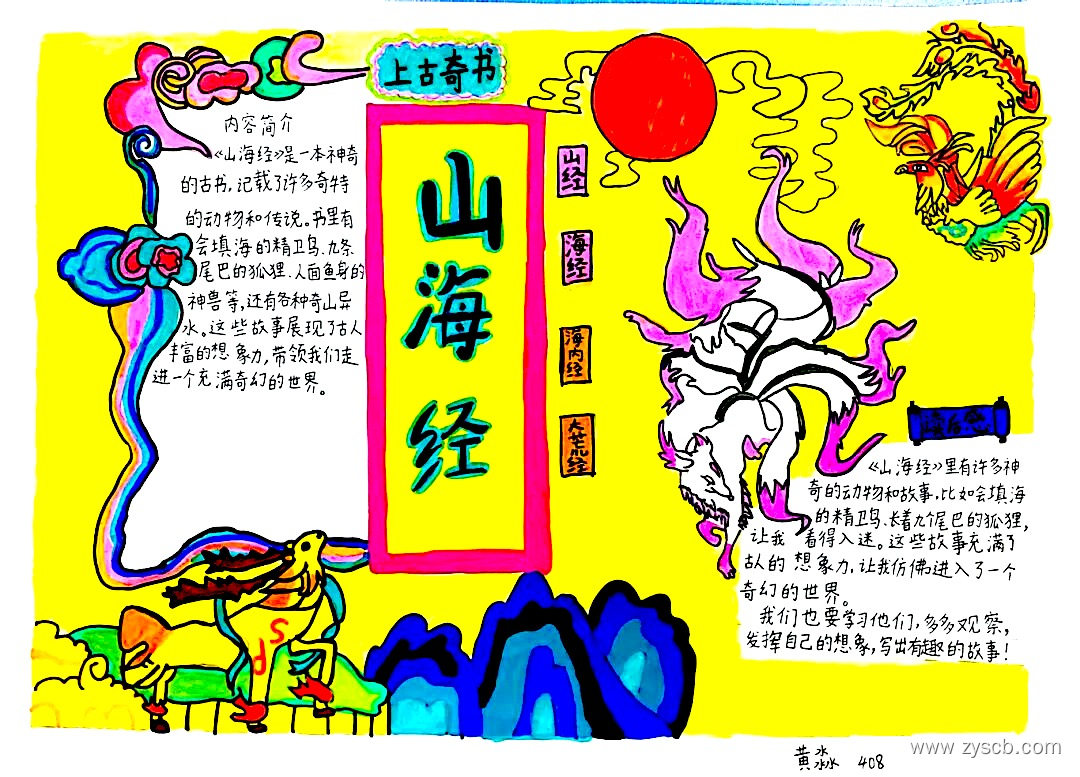 上古奇书
山海经
内容简介
《山海经》是一本神奇
的古书,记载了许多奇特
的动物和传说。书里有
会填海的精卫鸟、九条
尾巴的狐狸、人面鱼身的
神兽等,还有各种奇山异
水。这些故事展现了古人
丰富的想象力,带领我们走
进一个充满奇幻的世界。
山经
海经
海内经
大荒经
读后感
《山海经》里有许多神
奇的动物和故事,比如会填海
的精卫鸟、长着九个尾巴的狐狸,
让我看得入迷。这些故事充满了
古人的想象力,让我仿佛进入了一个
奇幻的世界。
我们也要学习他们,多多观察,
发挥自己的想象,写出有趣的故事!
黄淼淼 408
www.zyscb.com